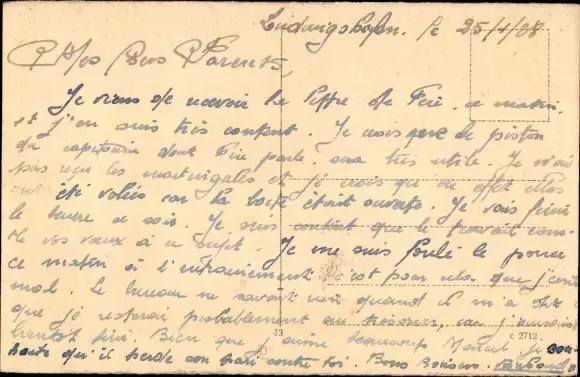 Ludwigshafen. le 25/4/28
Mes Bons Parents,
Je viens de recevoir la lettre de Féli, ce matin
et j'en suis très content. Je crois que le piston
du capitaine dont Féli parle, sera très utile. Je n'ai
pas reçu les martingales et je crois qu'en effet elles
ont été volées car la boîte était ouverte. Je vais finir
le beurre ce soir. Je suis content que le travail com-
ble vos vœux à ce sujet. Je me suis foulé le pouce
ce matin à l'entraînement c'est pour cela que j'écris
mal. Le bureau ne savait rien quand il m'a dit
que je resterai probablement au trésorier, car j'aurais
bientôt fini. Bien que j'aime beaucoup Marcel, je sou-
haite qu'il perde son pari contre toi. Bons Baisers.
33
C 2712